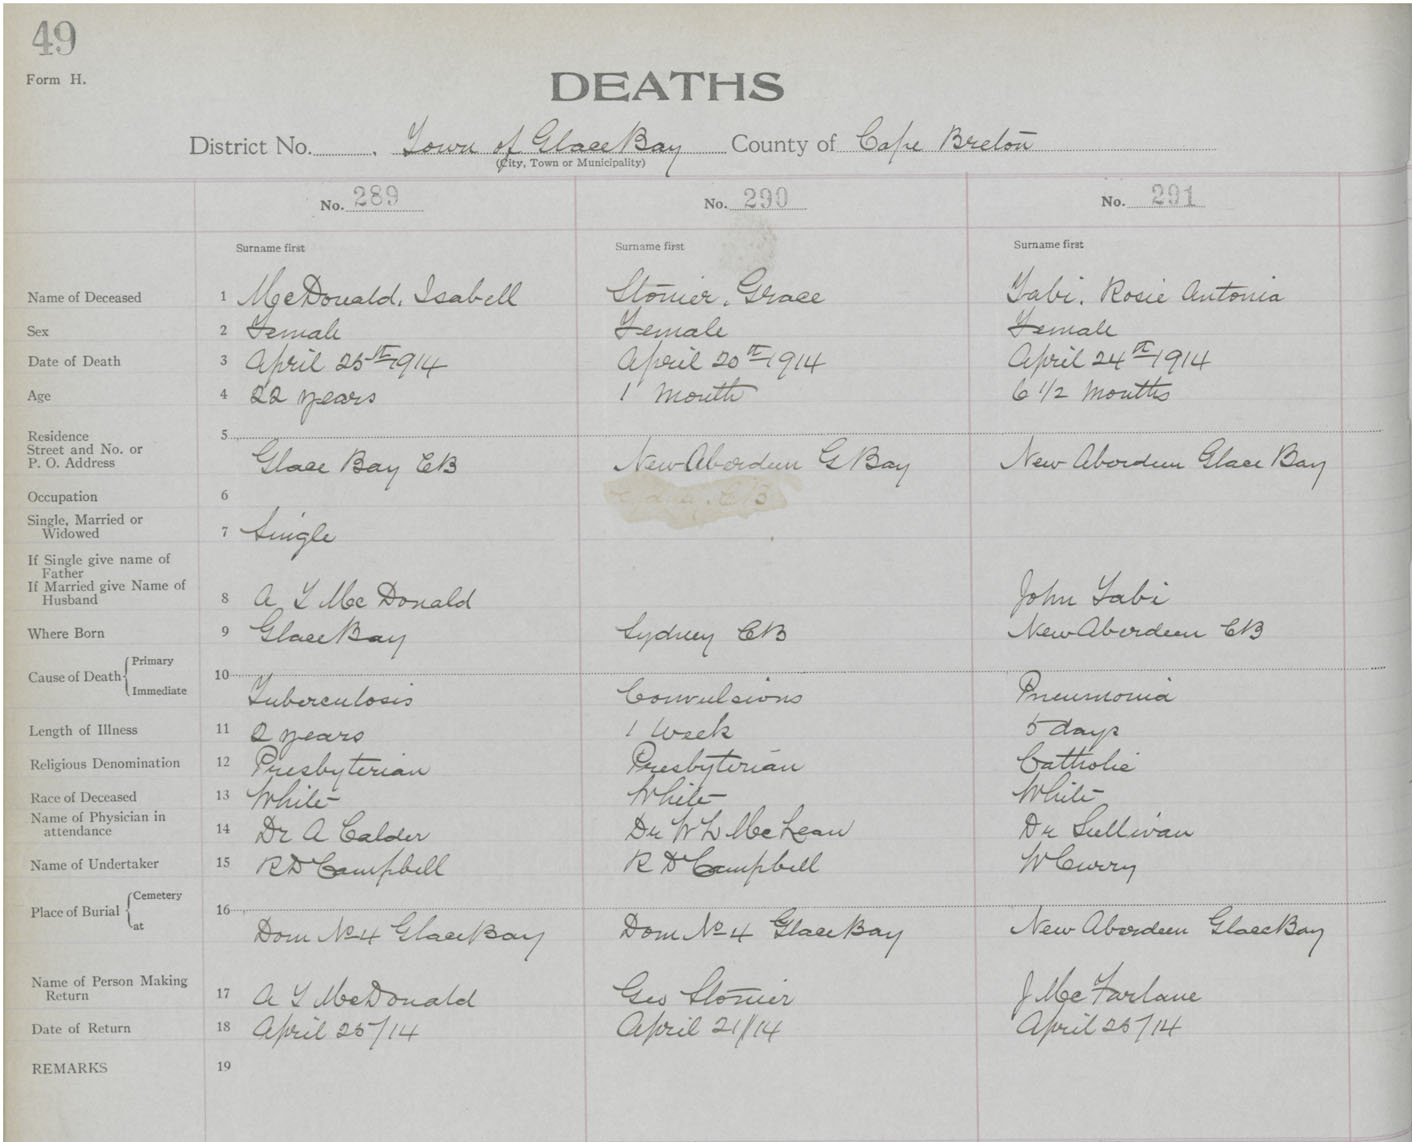 49
Form H.
DEATHS
District No. Town of Glace Bay County of Cape Breton
(City, Town or Municipality)
No. 289 No. 290 No. 291
Surname first Surname first Surname first
Name of Deceased 1 McDonald, Isabell Stonier, Grace Rosie Antonia
Sex 2 Female Female Female
Date of Death 3 April 25th 1914 April 20th 1914 April 24th 1914
Age 4 22 years 1 month 6 1/2 months
Residence 5
Street and No. or
P. O. Address Glace Bay CB New Aberdeen G Bay New Aberdeen Glace Bay
Occupation 6 Sydney, CB
Single, Married or
Widowed 7 Single
If Single give name of
Father
If Married give Name of
Husband 8 A McDonald John
Where Born 9 Glace Bay Sydney CB New Aberdeen CB
Cause of Death Primary 10
Immediate Tuberculosis Convulsions Pneumonia
Length of Illness 11 2 years 1 week 5 days
Religious Denomination 12 Presbyterian Presbyterian Catholic
Race of Deceased 13 White White White
Name of Physician in
attendance 14 Dr A Calder Dr W L McLean Dr Sullivan
Name of Undertaker 15 R D Campbell R D Campbell W Curry
Place of Burial Cemetery 16
at Dom No 4 Glace Bay Dom No 4 Glace Bay New Aberdeen Glace Bay
Name of Person Making
Return 17 A McDonald Geo Stonier J McFarlane
Date of Return 18 April 25/14 April 21/14 April 25/14
REMARKS 19